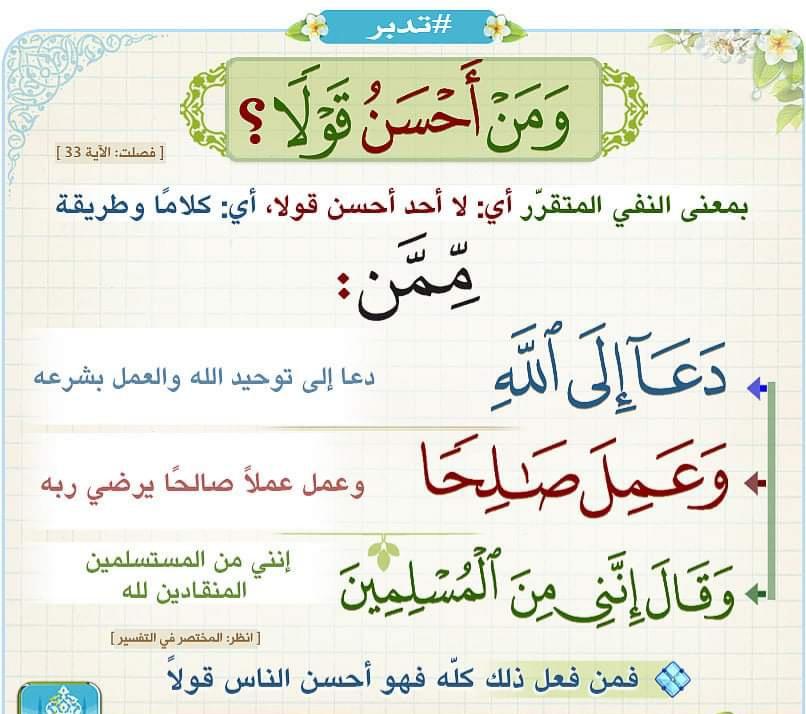 #تدبر
وَمَنْ أَحْسَنُ قَوْلًا ؟
[ فصلت: الآية 33 ]
بمعنى النفي المتقرّر أي: لا أحد أحسن قولا، أي: كلامًا وطريقة
مِّمَّن :
دَعَآ إِلَى ٱللَّهِ
دعا إلى توحيد الله والعمل بشرعه
وَعَمِلَ صَٰلِحًا
وعمل عملاً صالحًا يرضي ربه
وَقَالَ إِنَّنِي مِنَ ٱلْمُسْلِمِينَ
إنني من المستسلمين
المنقادين لله
[ انظر: المختصر في التفسير ]
فمن فعل ذلك كلّه فهو أحسن الناس قولاً